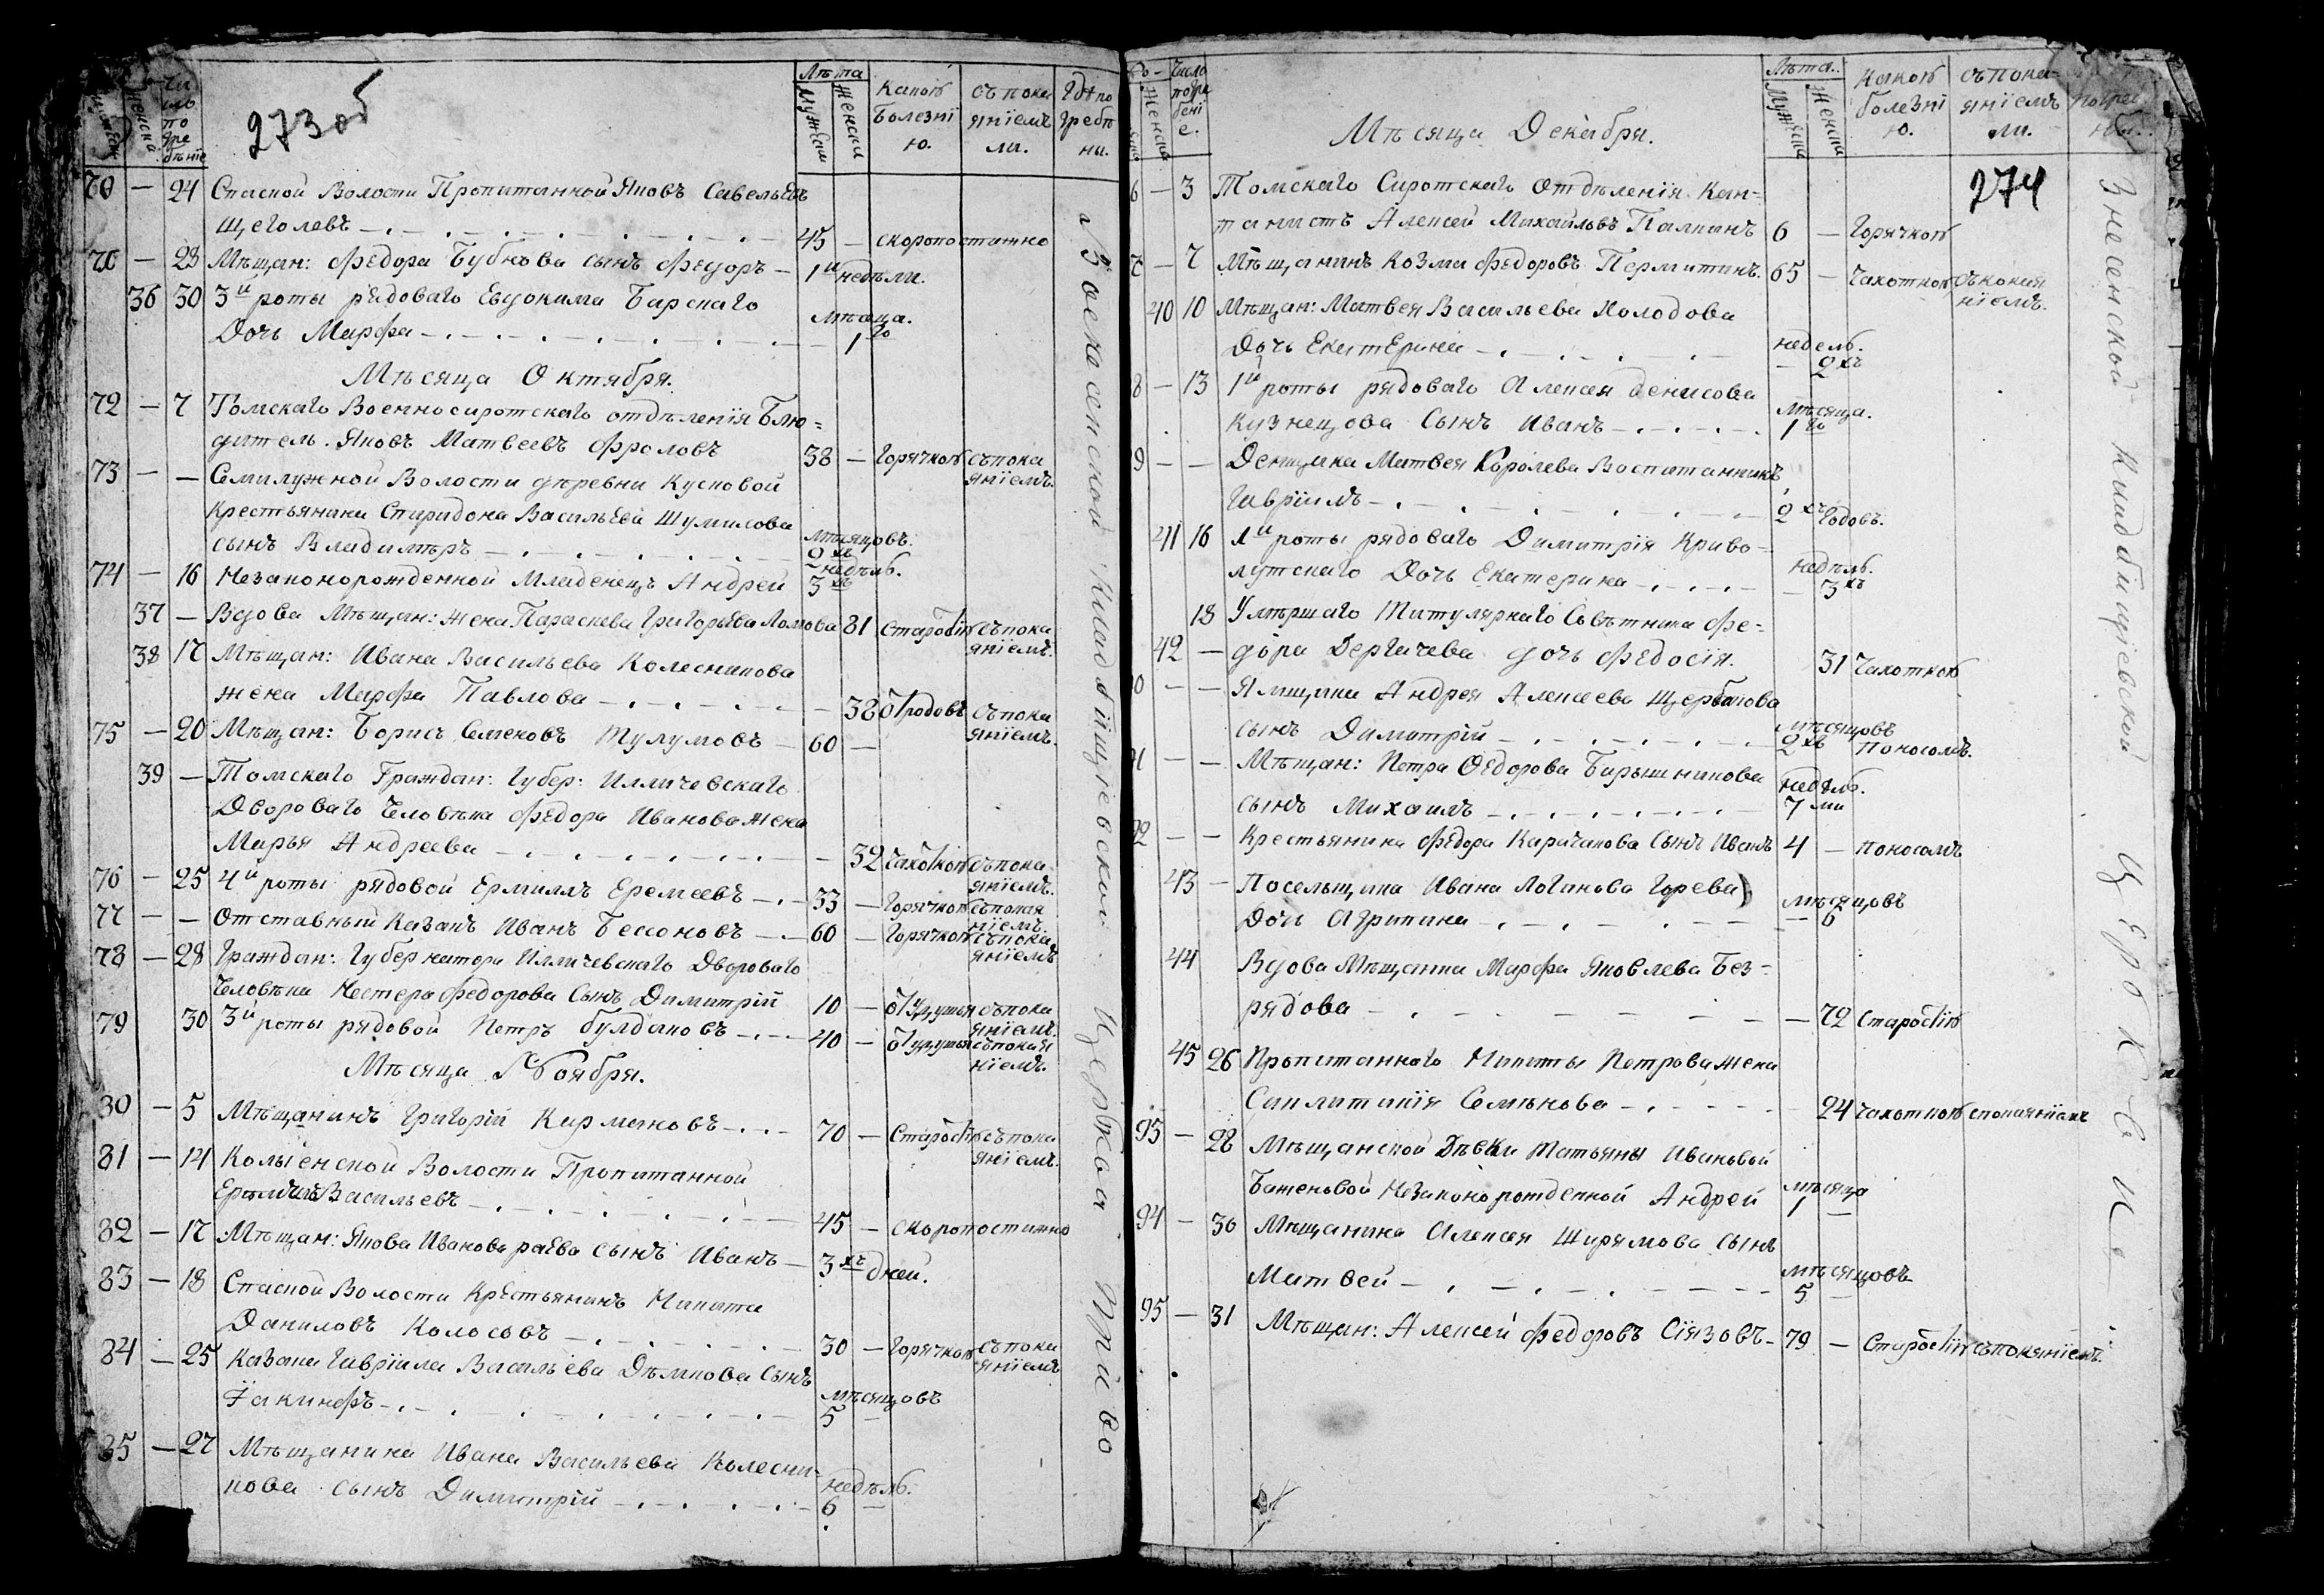 273об
Мужеска
Женска
Чи
сло
по
гре
бѣнїе
Лѣта
Мужеска
Женска
Какоѣ
Болезнї
ю.
съпока
янїемъ
ли.
Гдѣ по
гребѣ
ны.
70 — 24 Спаской Волости Пропитанной Яковъ Савельевъ
Щеголевъ 45 — скоропостижно
— 28 Мѣщан: Федора Бубнова сынъ Федоръ — 1й недѣли.
36 30 3й роты рядоваго Евдокима Барскаго
Дочь Марфа мѣсяца. 1го
Мѣсяца Октября.
72 — 7 Томскаго Военносиротскаго отдѣленїя Блю=
дитель Яковъ Матвеевъ Фроловъ 38 — Горячкоѣ съпока
янїемъ.
73 — — Семилужной Волости деревни Кусковой
Крестьянина Спиридона Васильева Шумилова
сынъ Владимѣръ мѣсяцовъ. 2хъ
74 — 16 Незаконорожденной Младенецъ Андрей недѣль. 3хъ
37 — Вдова Мѣщан: жена Параскева Григорьева Ломова 81 Старостїю съпока
янїемъ.
38 17 Мѣщан: Ивана Васильева Колесникова
жена Марфа Павлова — 38 Отродовъ съпока
янїемъ.
75 — 20 Мѣщан: Борисъ Семеновъ Тулумовъ — 60 —
39 — Томскаго Граждан: Губер: Илличевскаго
Двороваго Человѣка Федора Иванова жена
Марья Андреева — 32 Чахоткоѣ съпока
янїемъ.
76 — 25 4й роты рядовой Ермилъ Еремеевъ — 33 — Горячкоѣ съпокая
нїемъ.
77 — — Отставный Казакъ Иванъ Бессоновъ — 60 — Горячкоѣ съпока
янїемъ
78 — 28 Граждан: Губернатора Илличевскаго Двороваго
Человѣка Нестера Федорова Сынъ Димитрїй 10 — Отудушья съпока
янїемъ.
79 30 3й роты рядовой Петръ Булдаковъ — 40 — Отудушья съпокая
нїемъ.
Мѣсяца Ноября.
80 — 5 Мѣщанинъ Григорїй Кирмановъ — 70 — Старостїю съпока
янїемъ.
81 — 14 Волости Пропитанной
Васильевъ 45 — скоропостижно
82 — 17 Мѣщан: Якова Иванова раева сынъ Иванъ — 3хъ дней.
83 — 18 Спаской Волости Крестьянинъ Никита
Даниловъ Колосовъ 30 — Горячкоѣ съпока
янїемъ
84 — 25 Казака Гаврїила Васильева Сынъ
Їакинфъ — мѣсяцовъ 5 —
85 — 27 Мѣщанина Ивана Васильева Колесни=
кова сынъ Димитрїй — недѣль. 6 —
Вознесенской Кладбищѣвской Церквой Приво
Женска
Число
погре
бенї
е.
Мѣсяца Декабря.
Лѣта.
Мужеска
Женска
Какоѣ
болезнї
ю.
съпока=
янїемъ
ли.
274
6 — 3 Томскаго Сиротскаго Отдѣленїя Кан=
танистъ Алексей Михайловъ Палкинъ 6 — Горячкоѣ
7 — 7 Мѣщанинъ Козма Федоровъ Пермитинъ. 65 — Чахоткоѣ съпокая
нїемъ.
40 10 Мѣщан: Матвея Васильева Холодова
Дочь Екатерина недель. — 2хъ
8 — 13 1й роты рядоваго Алексея Денисова
Кузнецова Сынъ Иванъ мѣсяца. 1го
9 — — Денщика Матвея Королева Воспитанникъ
Гаврїилъ 2хъ Годовъ.
41 16 1й роты рядоваго Димитрїя Криво=
лутскаго Дочь Екатерина недѣль. — 3хъ
18 Умѣршаго Титулярнаго Совѣтника Фе=
42 — дора Дергачева дочь Федосїя. 31 Чахоткоѣ
0 — — Ямщика Андрея Алексеева Щербакова
сынъ Димитрїй мѣсяцовъ 2хъ поносомъ.
91 — — Мѣщан: Петра Федорова Барышникова
сынъ Михаилъ недѣль. 7ми
92 — — Крестьянина Федора Карачакова Сынъ Иванъ 4 — поносомъ
43 — Посельщика Ивана Логинова Горева
Дочь Агрипина мѣсяцовъ — 6
44 Вдова Мѣщанка Марфа Яковлева Без=
рядова — 72 Старостїю
45 26 Пропитаннаго Никиты Петрова жена
Семѣнова — 24 чахоткоѣ спокаянїемъ
95 — 28 Мѣщанской Дѣвки Татьяны Ивановой
Баженовой Незаконорожденной Андрей мѣсяца 1 —
94 — 30 Мѣщанина Алексея Ширямова сынъ
Матвей — мѣсяцовъ 5 —
95 — 31 Мѣщан: Алексей Федоровъ Сїязовъ — 79 — Старостїю съпокянїемъ.
знесенской Кладбищѣвской Церкве